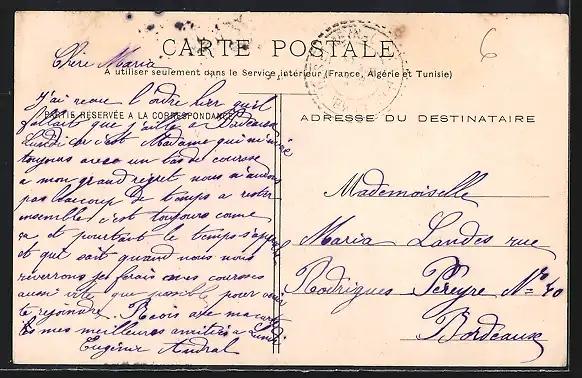 CARTE POSTALE
A utiliser seulement dans le Service intérieur (France, Algérie et Tunisie)
PARTIE RÉSERVÉE A LA CORRESPONDANCE
ADRESSE DU DESTINATAIRE
6
Chère Maria
J'ai reçue l'ordre hier qu'il
fallait que j'aille a Bordeaux
Lundi c'est Madame qui m'
toujours avec un de course
a mon grand regret nous n'aurons
pas beaucoup de temps a rester
ensemble c'est toujours come
ça et pourtant le temps
et qui sait quand nous nous
reverrons je ferais mes courses
aussi vite que possible pour
te rejoindre. Recois avec ma carte
les mes meilleures amitiés a Lundi
Eugénie Andral
Mademoiselle
Maria Landes rue
Rodrigues Péreyre No 40
Bordeaux